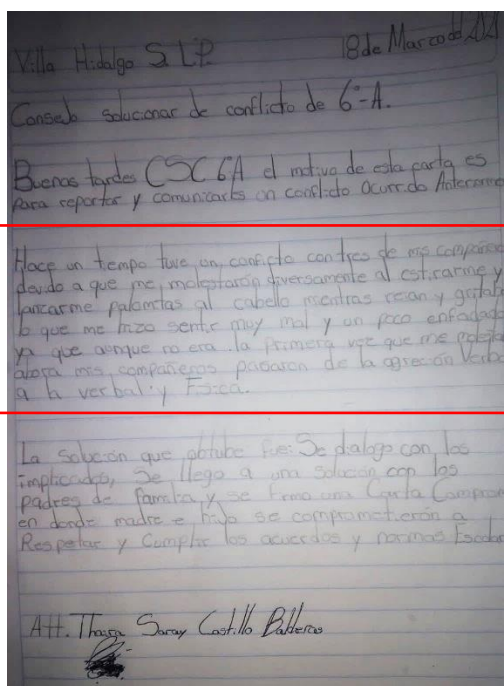 Villa Hidalgo S.L.P. 18 de Marzo del
Consejo solucionar de conflicto de 6°-A.
Buenas tardes CSC 6°A el motivo de esta carta es
Para reportar y comunicarles un conflicto ocurrido Anteriorme
Hace un tiempo tuve un conflicto con tres de mis compañeros
devido a que me molestarón diversamente al estirarme y
lanzarme palomitas al cabello mientras reian y gritaba
lo que me hizo sentir muy mal y un poco enfadada
ya que aunque no era la primera vez que me molesta
ahora mis compañeros pasaron de la agreción Verba
a la verbal y Fisica.
La solución que obtube fue: Se dialogo con los
implicados, Se llego a una solución con los
padres de familia y se firma una Carta Compro
en donde madre e hijo se comprometierón a
Respetar y Cumplir los acuerdos y normas Escolar
Att. Saray Castillo Balderas